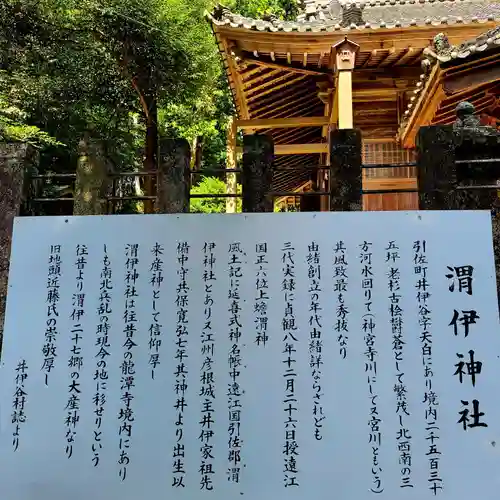 渭伊神社
引佐町井伊谷字天白にあり境内二千五百三十
五坪 老杉古桧欝蒼として繁茂し北西南の三
方河水回りて（神宮寺川にしてヌ宮川ともいう）
其風致最も秀抜なり
由緒創立の年代由緒詳ならされども
三代実録に貞観八年十二月二十六日授遠江
国正六位上蟾渭神
風土記に延喜式神名帳中遠江国引佐郡 渭
伊神社とありヌ江州彦根城主井伊家祖先
備中守共保寛弘七年其神井より出生以
来産神として信仰厚し
渭伊神社は往昔今の龍潭寺境内にあり
しを南北兵乱の時現今の地に移せりという
往昔より渭伊二十七郷の大産神なり
旧地頭近藤氏の崇敬厚し
井伊谷村誌より